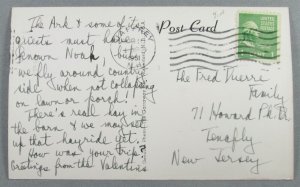 The Ark & some of its
guests must have
known Noah, but
we fly around country
side when not collapsing
on lawn or porch!
There's real hay in
the barn & we may set
up that hayride yet.
How was your trip?
Greetings from the Valentines
Post Card
The Fred
Family
71 Howard Pk Dr
Tenafly
New Jersey